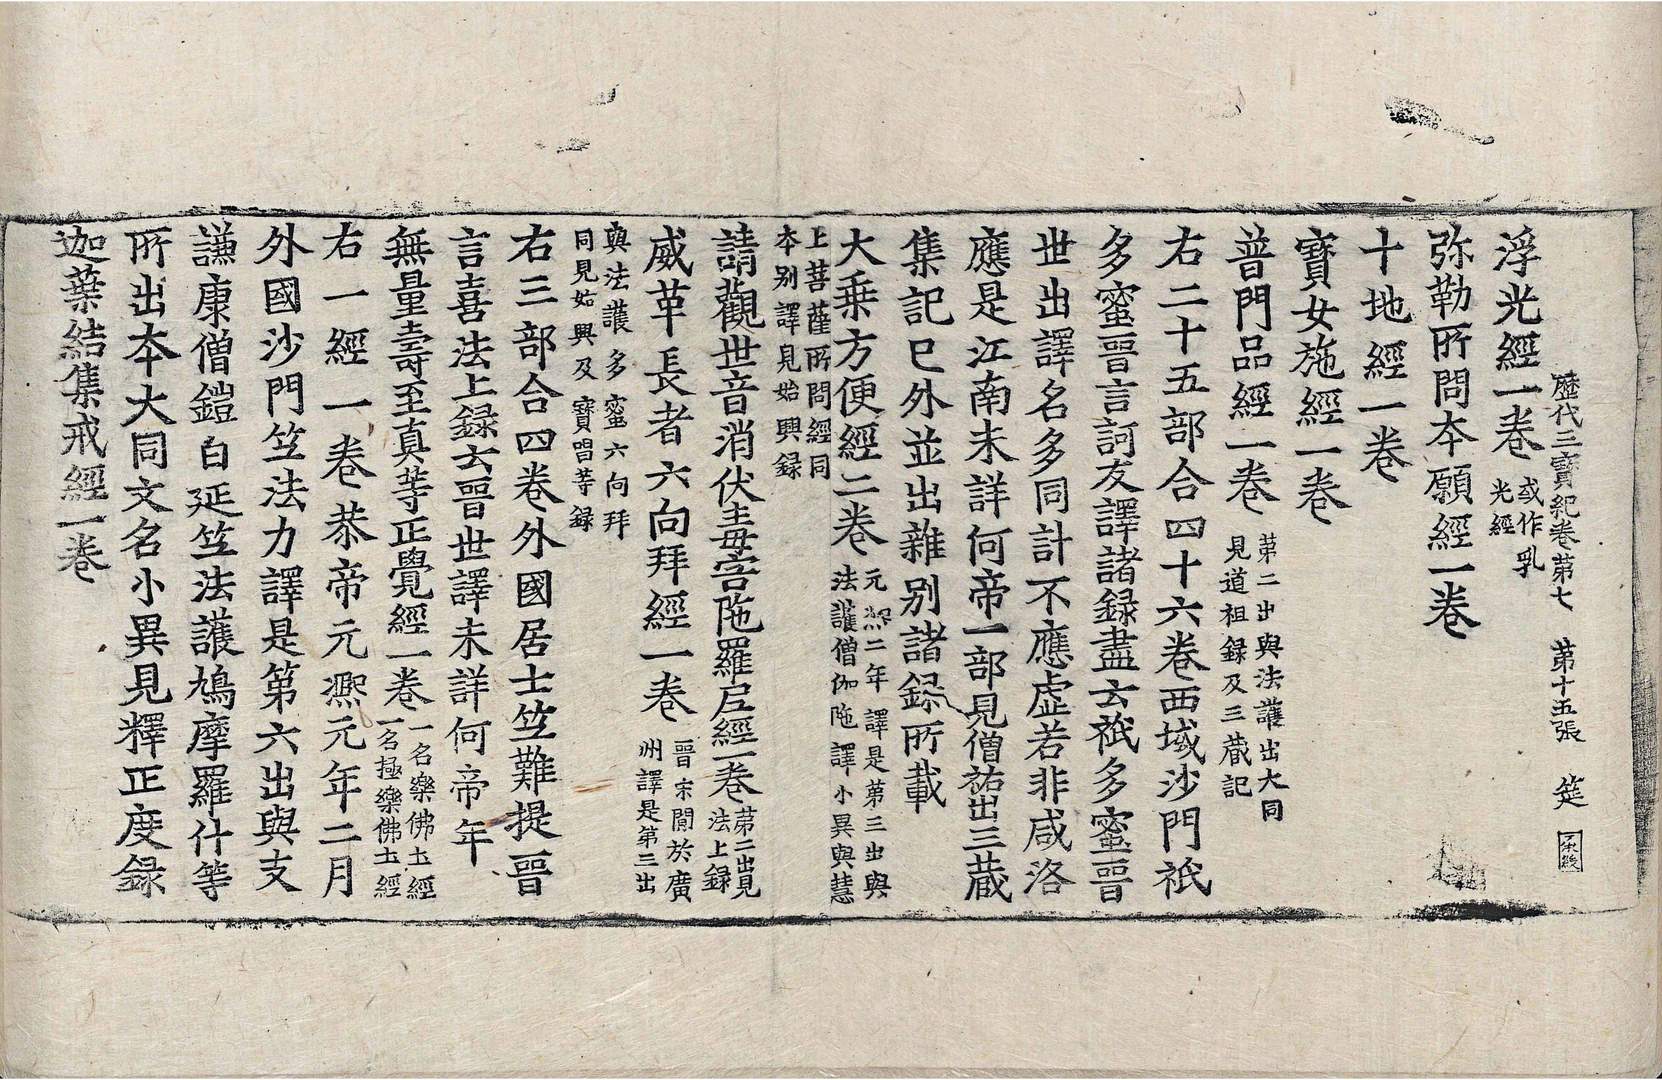 歷代三寶紀卷第七　第十五張　筵
浮光經一卷 或作乳光經
弥勒所問本願經一卷
十地經一卷
寶女施經一卷
普門品經一卷 第二出與法護出大同見道祖錄及三藏記
右二十五部合四十六卷西域沙門祇
多蜜晉言訶友譯諸録盡云祇多蜜晉
世出譯名多同計不應虛若非咸洛
應是江南未詳何帝一部見僧祐出三藏
集記已外並出雜别諸録所載
大乗方便經二卷 元熙二年譯是第三出與法護僧伽陁譯小異與慧
上菩薩所問經同本别譯見始興録
請觀世音消伏毒害陁羅尼經一卷 第二出見法上録
威革長者六向拜經一卷 晉宋間於廣州譯是第三出
與法護多蜜六向拜同見始興及寶唱等録
右三部合四卷外國居士竺難提晉
言喜法上録云晉世譯未詳何帝年
無量壽至真等正覺經一卷 一名樂佛土經一名極樂佛土經
右一經一卷恭帝元熙元年二月
外國沙門竺法力譯是第六出與支
謙康僧鎧白延竺法護鳩摩羅什等
所出本大同文名小異見釋正度録
迦葉結集戒經一卷